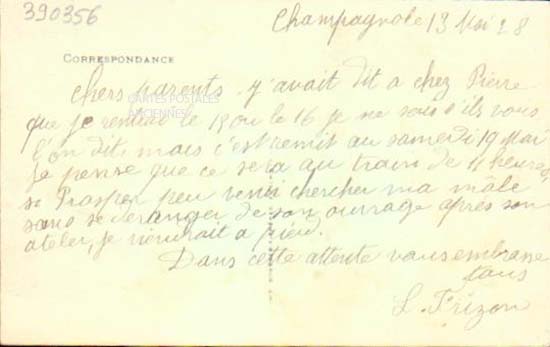 390356
Champagnole 13 Mai 28
CORRESPONDANCE
Chers parents. j'avait dit a chez Pierre
CARTES POSTALES
ANCIENNES
que je rentrai le 15 ou le 16 je ne sais s'ils vous
l'on dit, mais c'est remit au samedi 19 Mai
Je pense que ce sera au train de 11 heures,
se Prosper peu venir chercher ma mâle
sans se deranger de son ouvrage après son
ateler, je viendrait a pied.
Dans cette attente vous embrasse
tous
L. Frizon